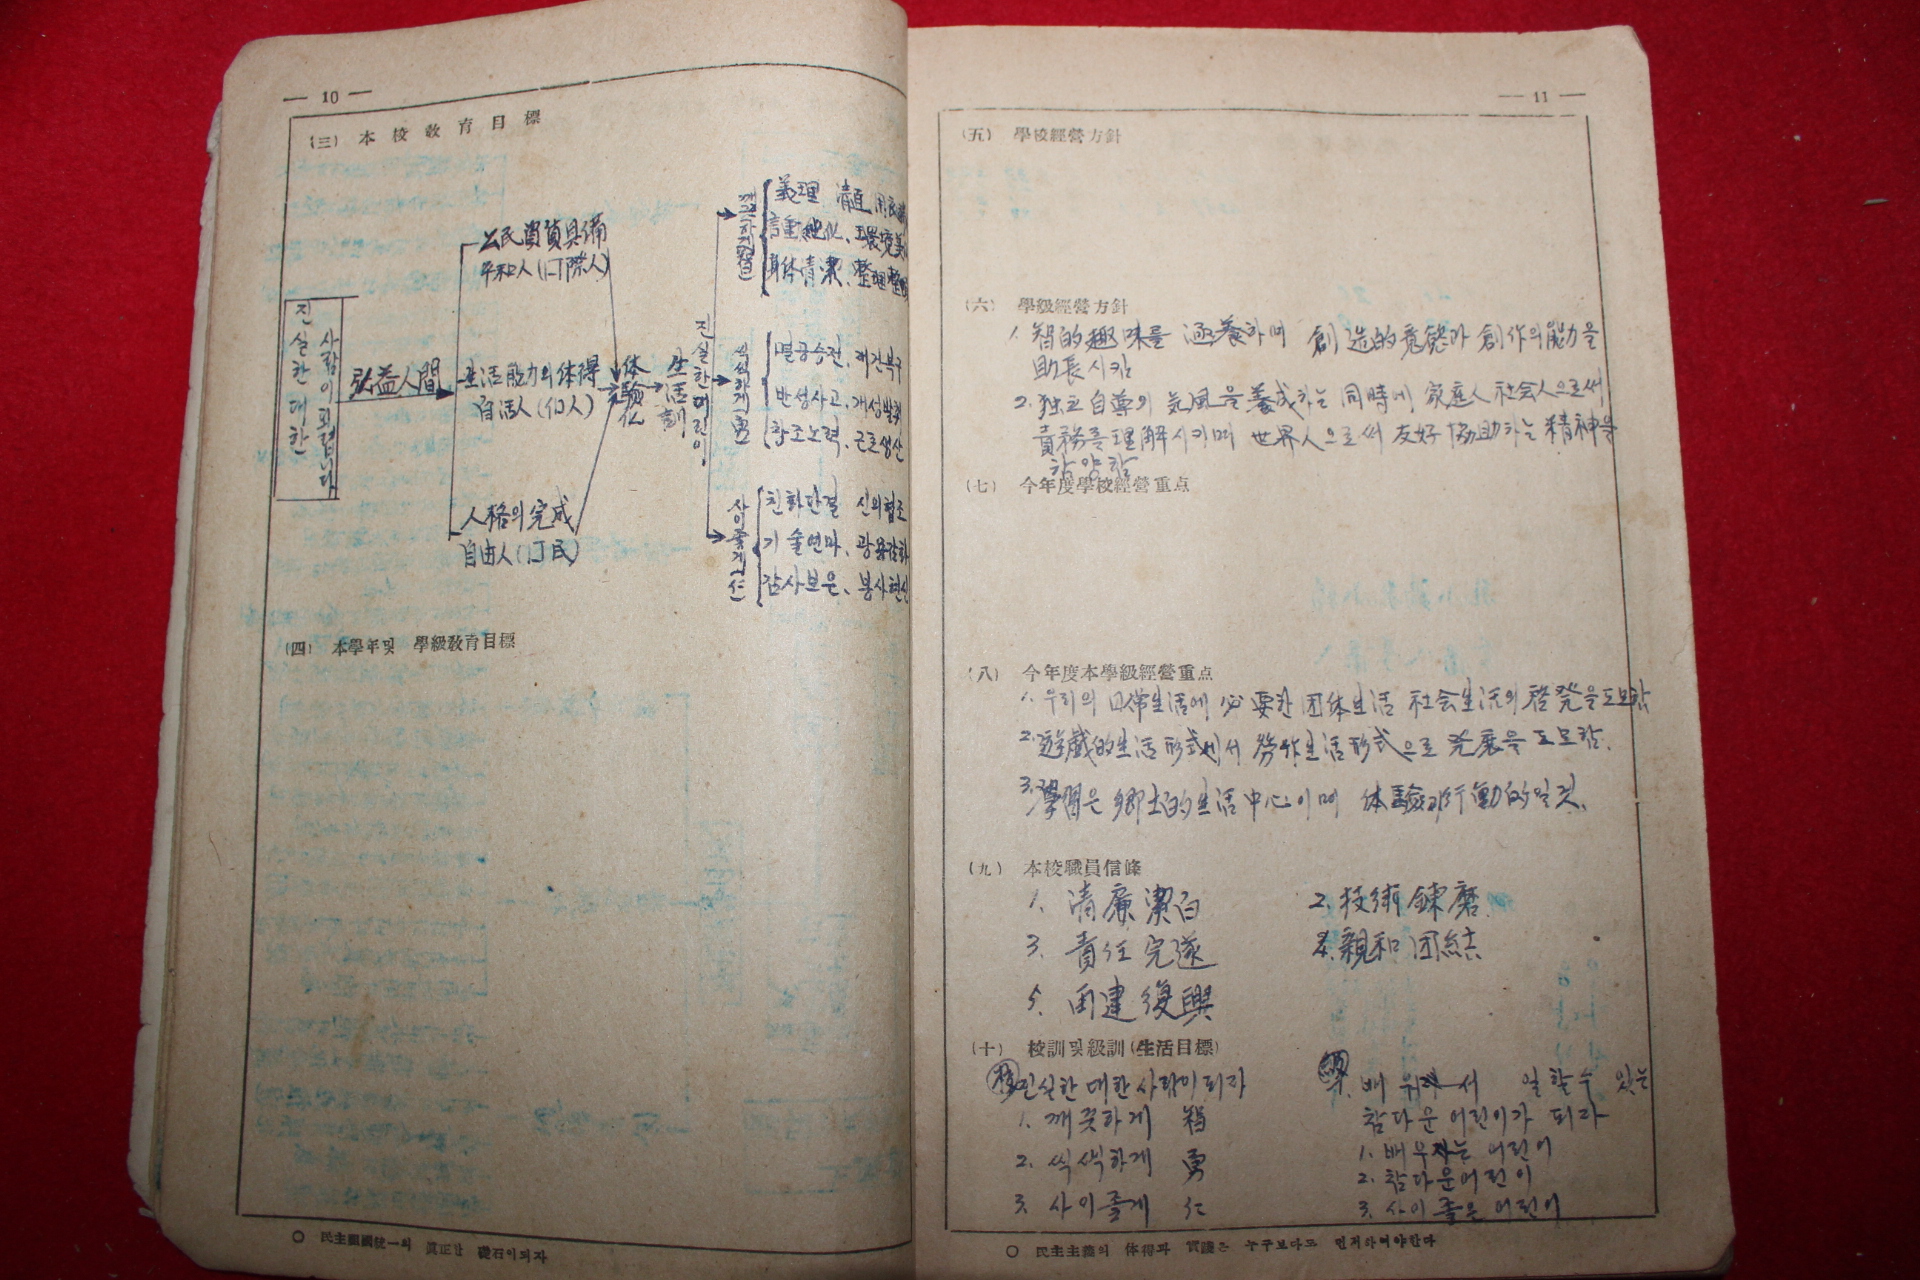 — 10 —
(三) 本校敎育目標
진실한대한
사람이되렵니다
弘益人間
公民資質具備
平和人(国際人)
生活能力의体得
自活人(個人)
人格의完成
自由人(国民)
体驗化
生活訓
진실한어린이
깨끗하게(智)
義理 清直
環境美
身体清潔、整理整
씩씩하게(勇)
멸공승전、재건복구
반성사고、개성발휘
창조노력、근로생산
사이좋게(仁)
친화단결 신의협조
기술연마、
감사보은、봉사헌신
(四) 本學年및 學級敎育目標
○ 民主祖國統一의 眞正한 礎石이되자
— 11 —
(五) 學校經營方針
(六) 學級經營方針
1. 智的趣味를 涵養하며 創造的意慾과 創作의能力을
助長시킴
2. 独立自尊의 気風을養成하는 同時에 家庭人社会人으로써
責務를理解시키며 世界人으로써 友好協助하는精神을
함양함
(七) 今年度學校經營重点
(八) 今年度本學級經營重点
1. 우리의 日常生活에 必要한 団体生活 社会生活의 啓発을도모함
2. 遊戯的生活形式에서 労作生活形式으로 発展을도모함.
3. 學習은 鄕土的生活中心이며 体驗과行動的일것.
(九) 本校職員信條
1. 清廉潔白 2. 技術錬磨
3. 責任完遂 4. 親和団結
5. 再建復興
(十) 校訓및級訓(生活目標)
校 진실한 대한사람이되자
1. 깨끗하게 智
2. 씩씩하게 勇
3. 사이좋게 仁
級 배워서 일할수 있는
참다운어린이가 되자
1. 배우자는 어린이
2. 참다운어린이
3. 사이좋은 어린이
○ 民主主義의 体得과 實踐은 누구보다도 먼저하여야한다